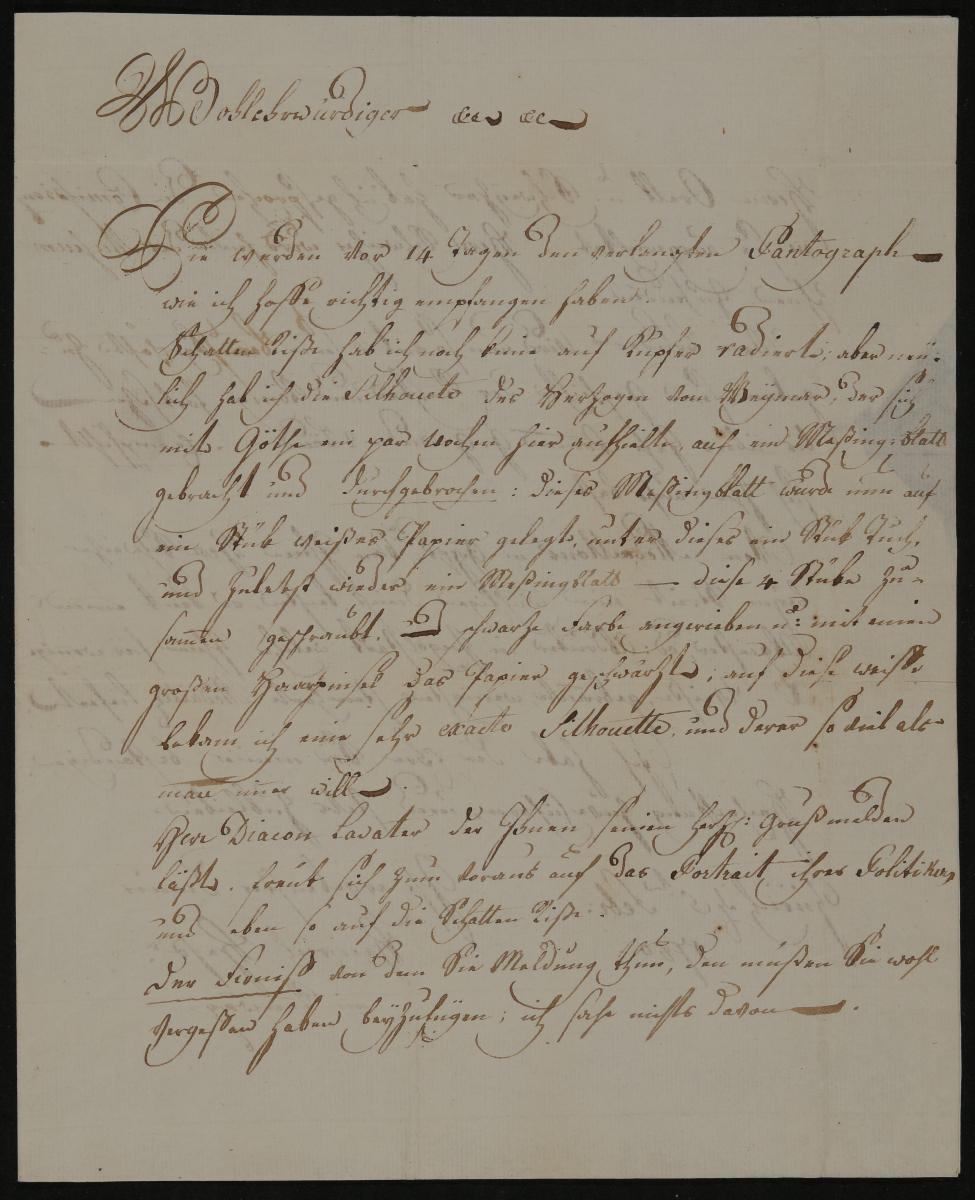 Wohlehrwürdiger &c. &c.
Sie werden vor 14 Tagen den verlangten Pantograph
wie ich hoffe richtig empfangen haben.
Schatten Riße hab ich noch keine auf Kupfer radiert; aber neü-
lich hab ich die Silhouete des Herzogen von Weymar, der sich
mit Göthe ein par Wochen hier aufhielte, auf ein Meßing-blatt
gebracht und durchgebrochen: dieses Meßingblatt wurde nun auf
ein Stük weißes Papier gelegt, unter dieses ein Stük Tuch,
und zuletzt wieder ein Meßingblatt — diese 4 Stüke zu-
samen geschraubt. schwarze Farbe angerieben u: mit einen
großen Haarpinsel das Papier geschwärzt; auf diese weisse
bekam ich eine sehr exacte Silhouette, und derer so viel als
man imer will.
Herr Diacon Lavater der Ihnen seinen herzl: Gruß melden
läßt. freut sich zum voraus auf das Portrait ihres Politikers
und eben so auf die Schatten Riße.
Der Firniss von dem Sie Meldung thun, den müßen Sie wohl
vergeßen haben beyzufügen; ich sahe nichts davon.